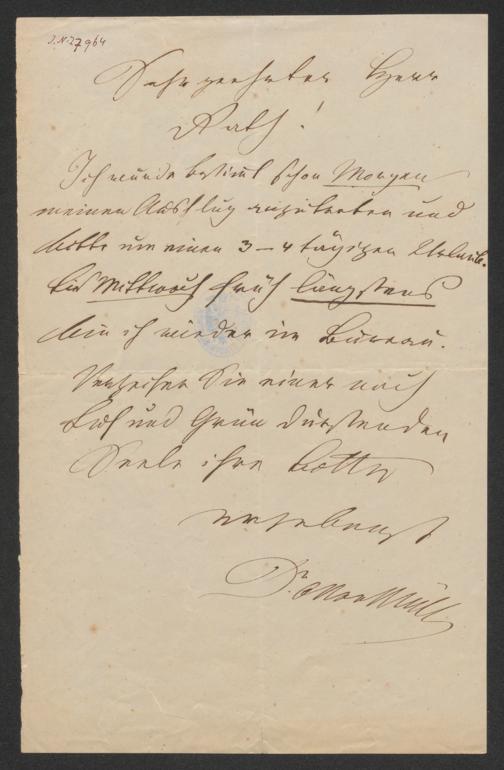 J.N. 27964
Sehr geehrter Herr
Rath!
Ich wurde bestimmt schon Morgen
meinen Ausflug anzutreten und
bitte um einen 3–4 tägigen Urlaub.
Bis Mittwoch früh längstens
bin ich wieder im Bureau.
Verzeihen Sie einer nach
Luft und Grün dürstenden
Seele ihre Bitte
ergebenst
Dr.